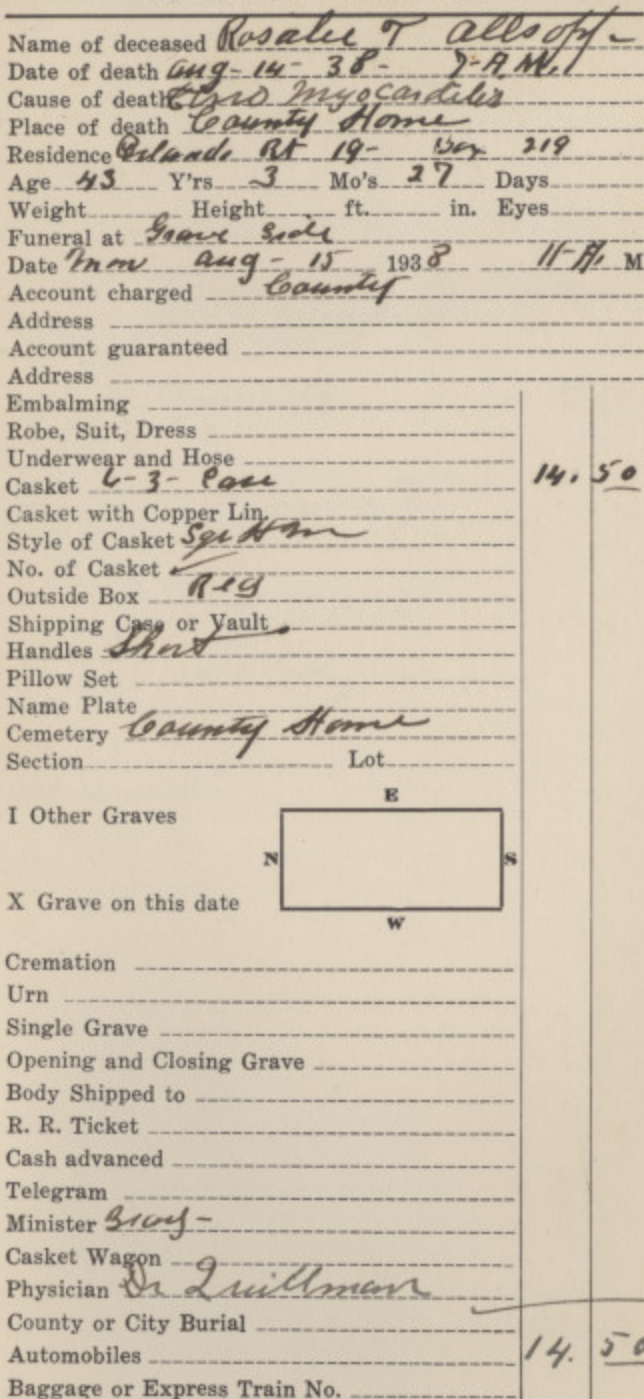 Name of deceased Rosalee T Allsopp
Date of death Aug - 14 - 38 - 7 - A.M.
Cause of death Myocarditis
Place of death County Home
Residence Orlando Rt 19 - Box 219
Age 43 Y'rs 3 Mo's 27 Days
Weight Height ft. in. Eyes
Funeral at Grave Side
Date Mon Aug - 15 1938 11 - A. M
Account charged County
Address
Account guaranteed
Address
Embalming
Robe, Suit, Dress
Underwear and Hose
Casket 6-3- Case 14. 50
Casket with Copper Lin.
Style of Casket Sqr
No. of Casket ✓
Outside Box Reg
Shipping Case or Vault
Handles Short
Pillow Set
Name Plate
Cemetery County Home
Section Lot
E
I Other Graves
N S
X Grave on this date
W
Cremation
Urn
Single Grave
Opening and Closing Grave
Body Shipped to
R. R. Ticket
Cash advanced
Telegram
Minister
Casket Wagon
Physician Dr Quillman
County or City Burial
Automobiles 14. 50
Baggage or Express Train No.